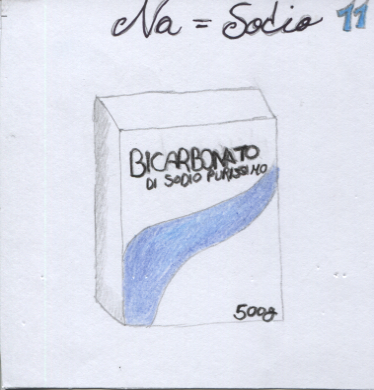 Na = Sodio 11
BICARBONATO
DI SODIO PURISSIMO
500g